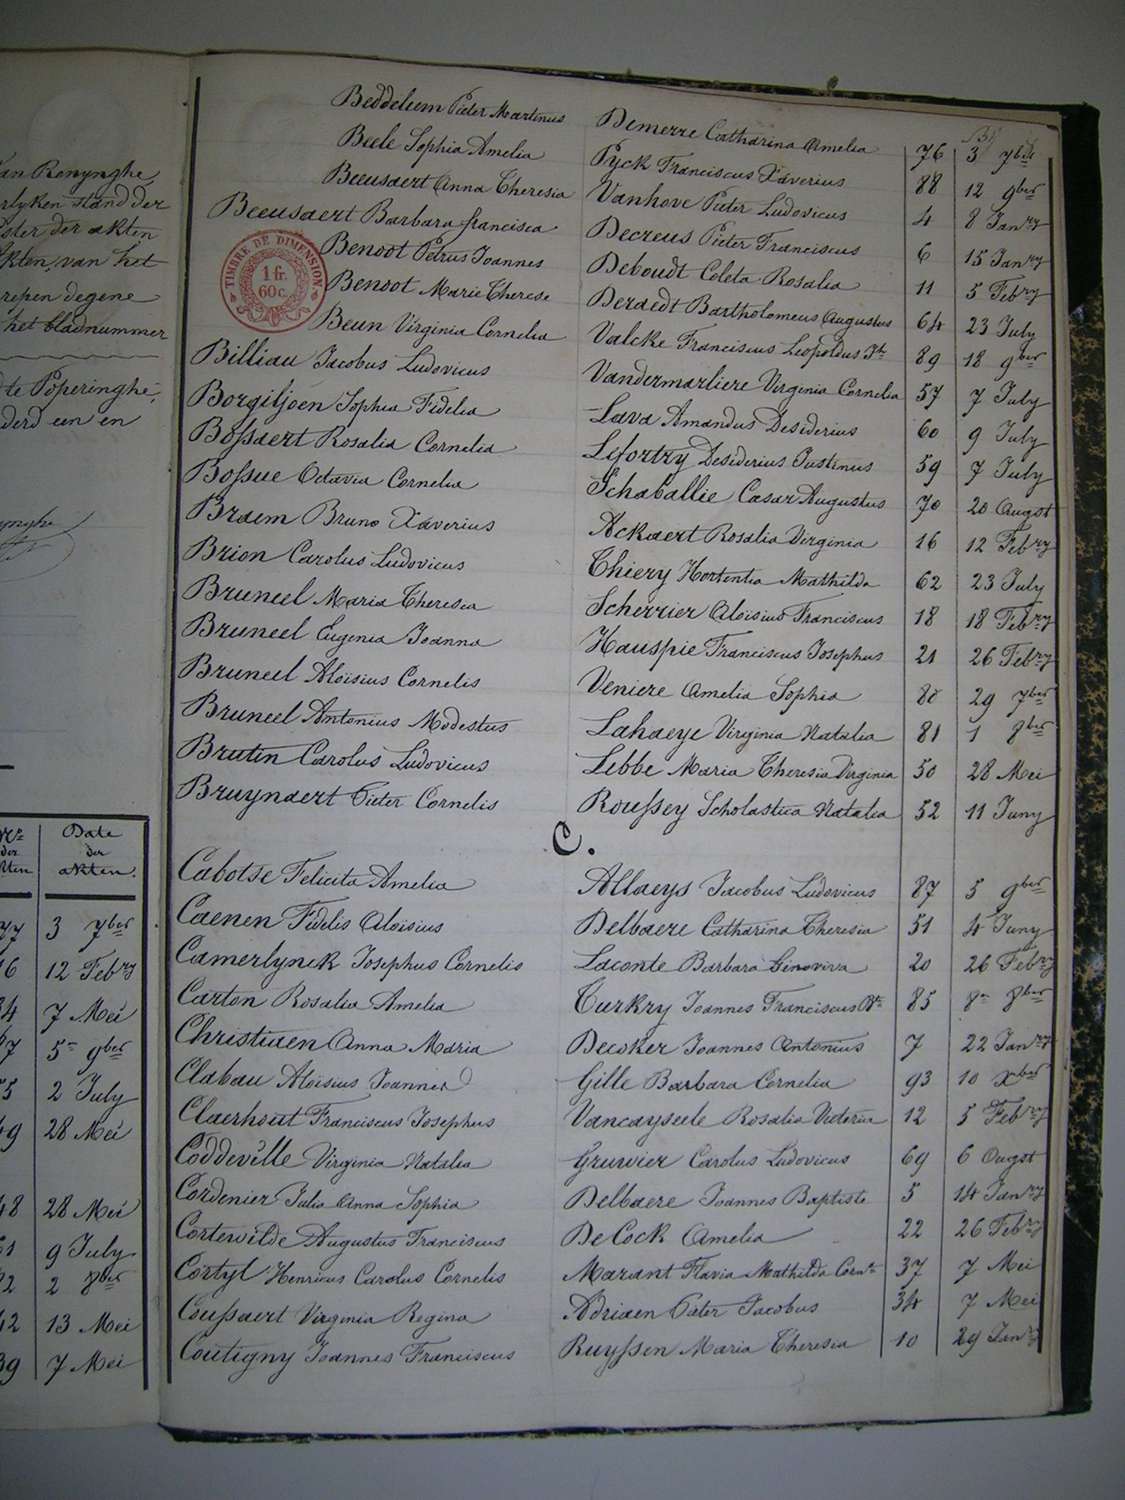 an Renynghe
rlyken stand der
ster der akten
kten, van het
repen degene
het bladnummer
te Poperinghe,
derd een en
ynghe
der
kten
Date
der
akten.
77 3 7ber
16 12 Febry
34 7 Mei
5 9ber
2 July
49 28 Mei
48 28 Mei
61 9 July
2 8ber
42 13 Mei
39 7 Mei
TIMBRE DE DIMENSION
1 fr.
60 c.
Beddeleem Pieter Martinus Demerre Catharina Amelia 76 3 7bre
Beele Sophia Amelia Pyck Franciscus Xaverius 88 12 9ber
Beeusaert Anna Theresia Vanhove Pieter Ludovicus 4 8 Janry
Beeusaert Barbara francisca Decreus Pieter Franciscus 6 15 Janry
Benoot Petrus Joannes Deboudt Coleta Rosalia 11 5 Febry
Benoot Marie Therese Deraedt Bartholomeus Augustus 64 23 July
Beun Virginia Cornelia Valcke Franciscus Leopoldus Jh 89 18 9ber
Billiau Jacobus Ludovicus Vandermarliere Virginia Cornelia 57 7 July
Borgiljoen Sophia Fidelia Lava Amandus Desiderius 60 9 July
Bossaert Rosalia Cornelia Lefortry Desiderius Justinus 59 7 July
Bossue Octavia Cornelia Schaballie Cæsar Augustus 70 20 Augst
Braem Bruno Xaverius Ackaert Rosalia Virginia 16 12 Febry
Brion Carolus Ludovicus Thiery Hortentia Mathilda 62 23 July
Bruneel Maria Theresia Scherrier Aloisius Franciscus 18 18 Febry
Bruneel Eugenia Joanna Hauspie Franciscus Josephus 21 26 Febry
Bruneel Aloisius Cornelis Veniere Amelia Sophia 80 29 7ber
Bruneel Antonius Modestus Lahaeye Virginia Natalia 81 1 8ber
Brutin Carolus Ludovicus Lebbe Maria Theresia Virginia 50 28 Mei
Bruynaert Pieter Cornelis Roussey Scholastica Natalia 52 11 Juny
C.
Cabotse Felicita Amelia Allaeys Jacobus Ludovicus 87 5 9ber
Caenen Fidelis Aloisius Delbaere Catharina Theresia 51 4 Juny
Camerlynck Josephus Cornelis Laconte Barbara Genoviva 20 26 Febry
Carton Rosalia Amelia Turkry Joannes Franciscus Bte 85 8 8ber
Christiaen Anna Maria Decoker Joannes Antonius 7 22 Janry
Clabau Aloisius Joannes Gille Barbara Cornelia 93 10 Xber
Claerhout Franciscus Josephus Vancayseele Rosalia Victoria 12 5 Febry
Coddeville Virginia Natalia Gruwier Carolus Ludovicus 69 6 Augst
Cordenier Julia Anna Sophia Delbaere Joannes Baptiste 5 14 Janry
Cortewilde Augustus Franciscus De Cock Amelia 22 26 Febry
Cortyl Henricus Carolus Cornelis Marant Flavia Mathilda Corn 37 7 Mei
Coussaert Virginia Regina Adriaen Pieter Jacobus 34 7 Mei
Coutigny Joannes Franciscus Ruyssen Maria Theresia 10 29 Janry